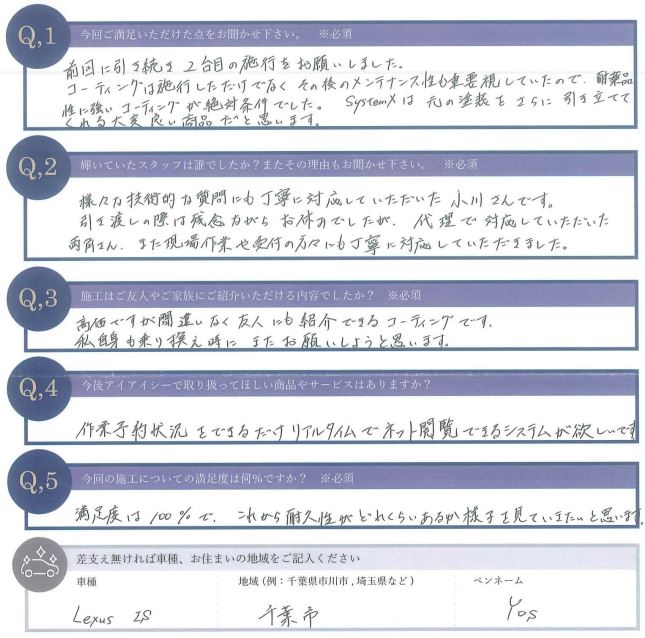 Q,1 今回ご満足いただけた点をお聞かせ下さい。 ※必須
前回に引き続き2台目の施行をお願いしました。
コーティングは施行しただけでなく その後のメンテナンス性も重要視していたので、耐薬品
性に強い コーティングが絶対条件でした。 SystemXは 元の塗装を さらに 引き立てて
くれる大変良い商品だと思います。
Q,2 輝いていたスタッフは誰でしたか？またその理由もお聞かせ下さい。 ※必須
様々な技術的な質問にも丁寧に対応していただいた 小川さんです。
引き渡しの際は残念ながら お休みでしたが、代理で対応していただいた
両角さん、また現場作業や受付の方々にも丁寧に対応していただきました。
Q,3 施工はご友人やご家族にご紹介いただける内容でしたか？ ※必須
高価ですが間違いなく友人にも紹介できるコーティングです。
私自身も乗り換え時に またお願いしようと思います。
Q,4 今後アイアイシーで取り扱ってほしい商品やサービスはありますか？
作業予約状況をできるだけリアルタイムでネット閲覧できるシステムが欲しいです
Q,5 今回の施工についての満足度は何％ですか？ ※必須
満足度は100%で、これから耐久性がどれくらいあるか様子を見ていきたいと思います。
差支え無ければ車種、お住まいの地域をご記入ください
車種 地域（例：千葉県市川市，埼玉県など） ペンネーム
Lexus IS 千葉市 Yos